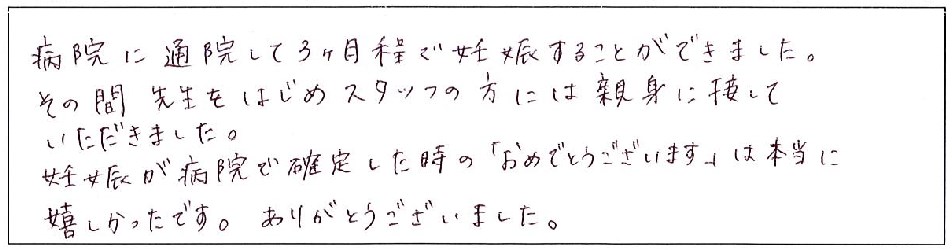 病院に通院して3ヶ月程で妊娠することができました。
その間 先生をはじめスタッフの方には親身に接して
いただきました。
妊娠が病院で確定した時の「おめでとうございます」は本当に
嬉しかったです。ありがとうございました。